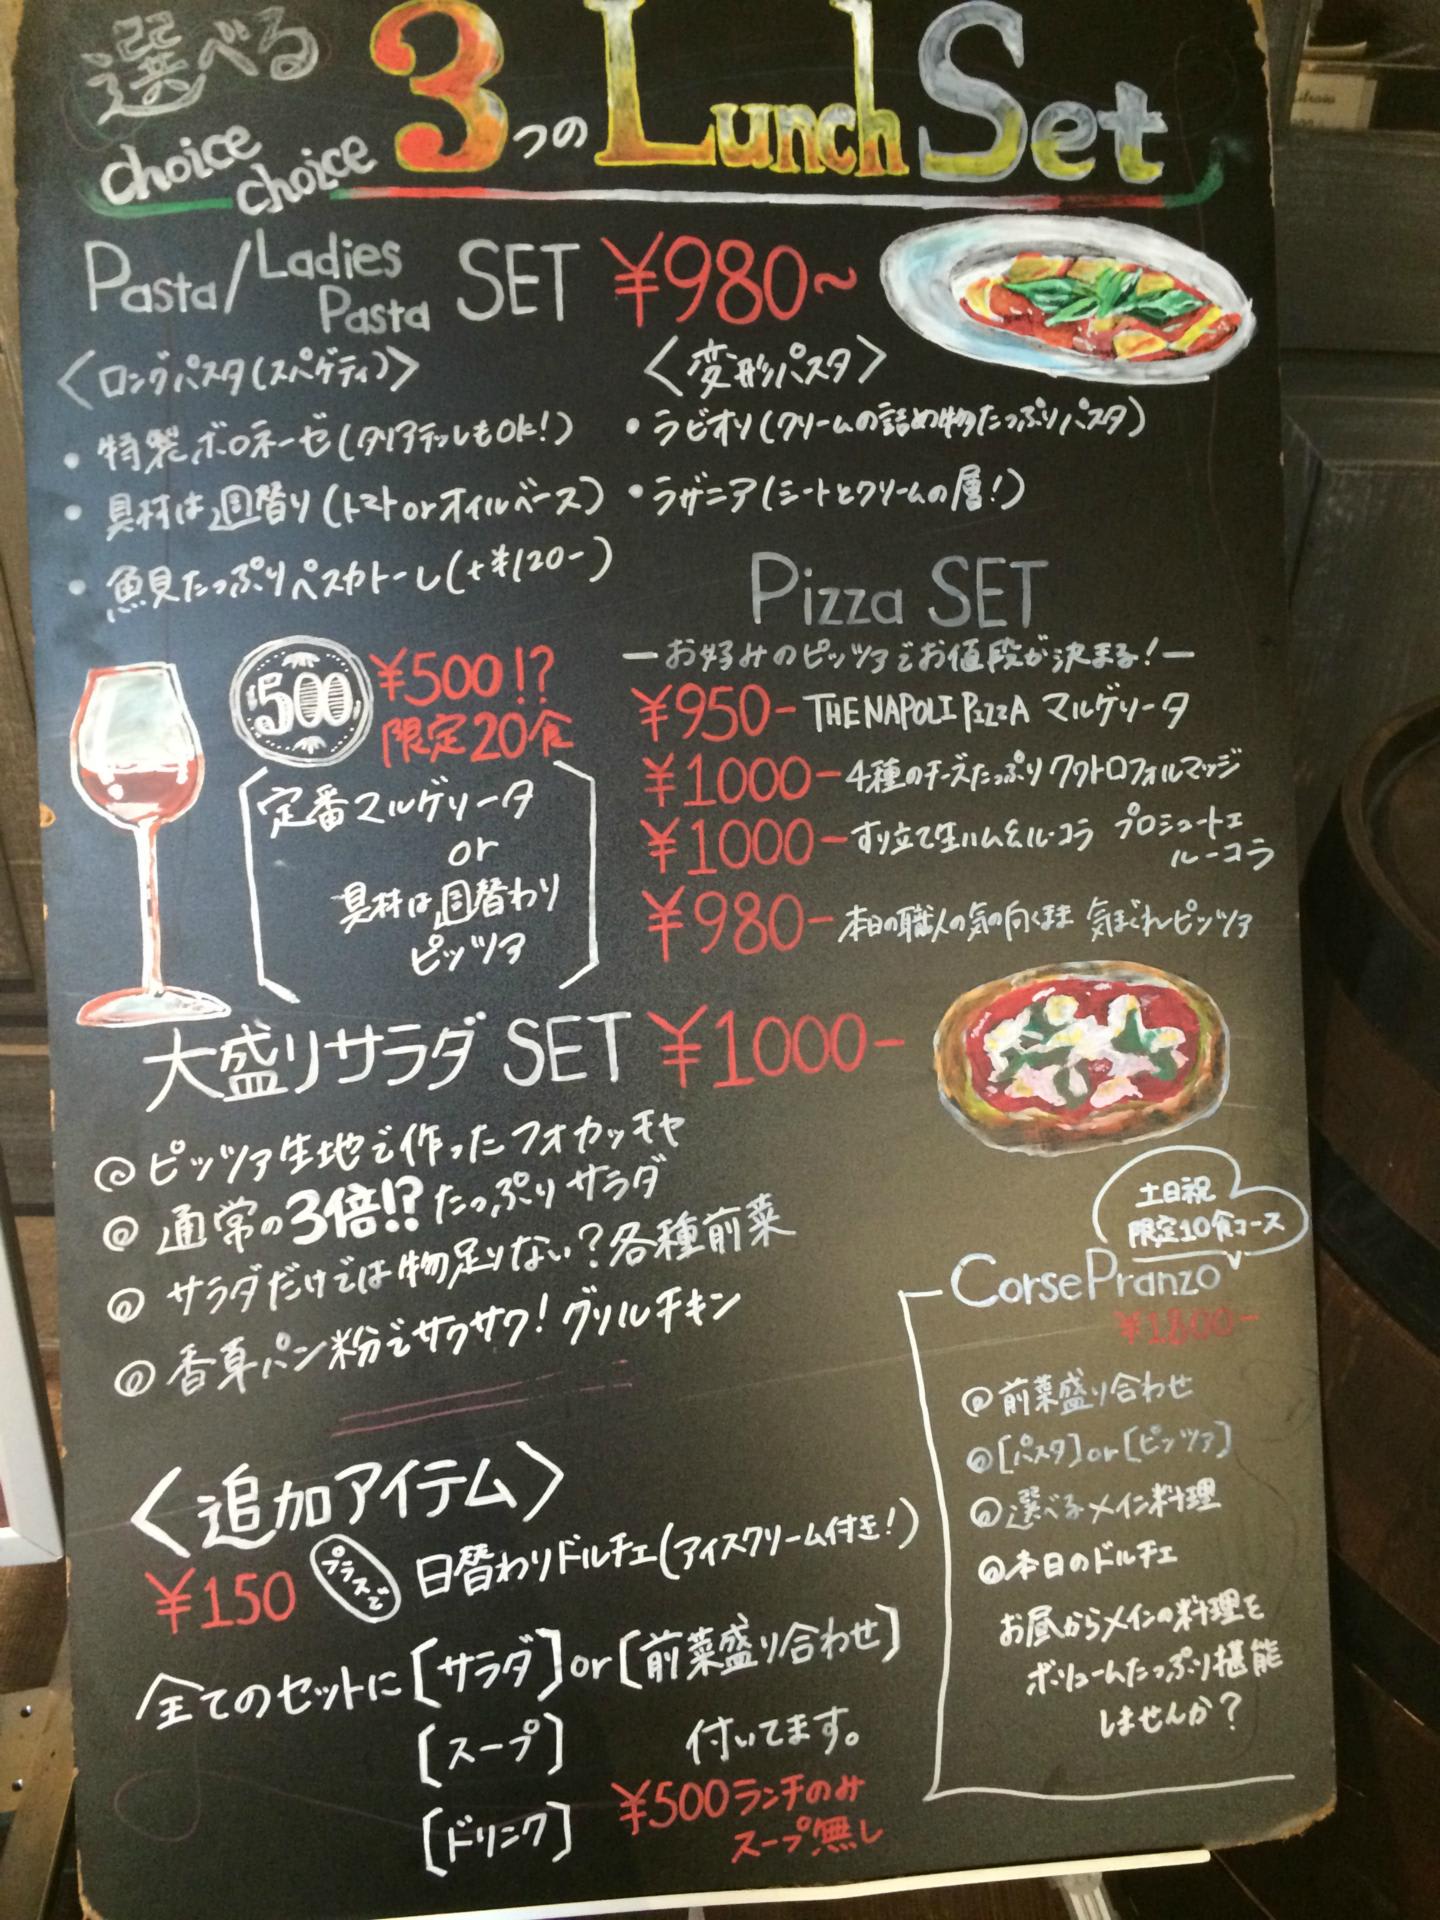 選べる
choice
choice
3つのLunch Set
Pasta/Ladies Pasta SET ¥980~
〈ロングパスタ(スパゲティ)〉
・特製ボロネーゼ(タリアテッレもOk!)
・具材は週替り(トマトorオイルベース)
・魚貝たっぷりペスカトーレ(+¥120-)
〈変形パスタ〉
・ラビオリ(クリームの詰め物たっぷりパスタ)
・ラザニア(シートとクリームの層!)
500
¥500!?
限定20食
定番マルゲリータ
or
具材は週替わり
ピッツァ
Pizza SET
―お好みのピッツァでお値段が決まる!―
¥950- THE NAPOLI PIZZA マルゲリータ
¥1000-4種のチーズたっぷりクワトロフォルマッジ
¥1000-すり立て生ハム&ルーコラ プロシュートエ
ルーコラ
¥980-本日の職人の気の向くまま 気まぐれピッツァ
大盛りサラダ SET ¥1000-
◎ピッツァ生地で作ったフォカッチャ
◎通常の3倍!?たっぷりサラダ
◎サラダだけでは物足りない?各種前菜
◎香草パン粉でサクサク!グリルチキン
土日祝
限定10食コース
CorsePranzo
¥1800-
◎前菜盛り合わせ
◎[パスタ]or[ピッツァ]
◎選べるメイン料理
◎本日のドルチェ
お昼からメインの料理を
ボリュームたっぷり堪能
しませんか?
〈追加アイテム〉
¥150 プラスで 日替わりドルチェ(アイスクリーム付き!)
全てのセットに[サラダ]or[前菜盛り合わせ]
[スープ] 付いてます。
[ドリンク] ¥500ランチのみ
スープ無し